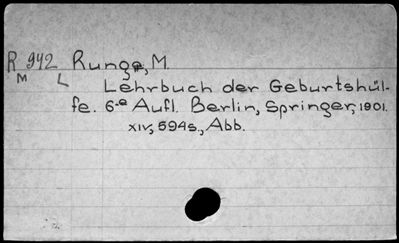 R 942 Runge, M.
M L
Lehrbuch der Geburtshül-
fe. 6-e Aufl. Berlin, Springer, 1901.
XIV, 594s., Abb.